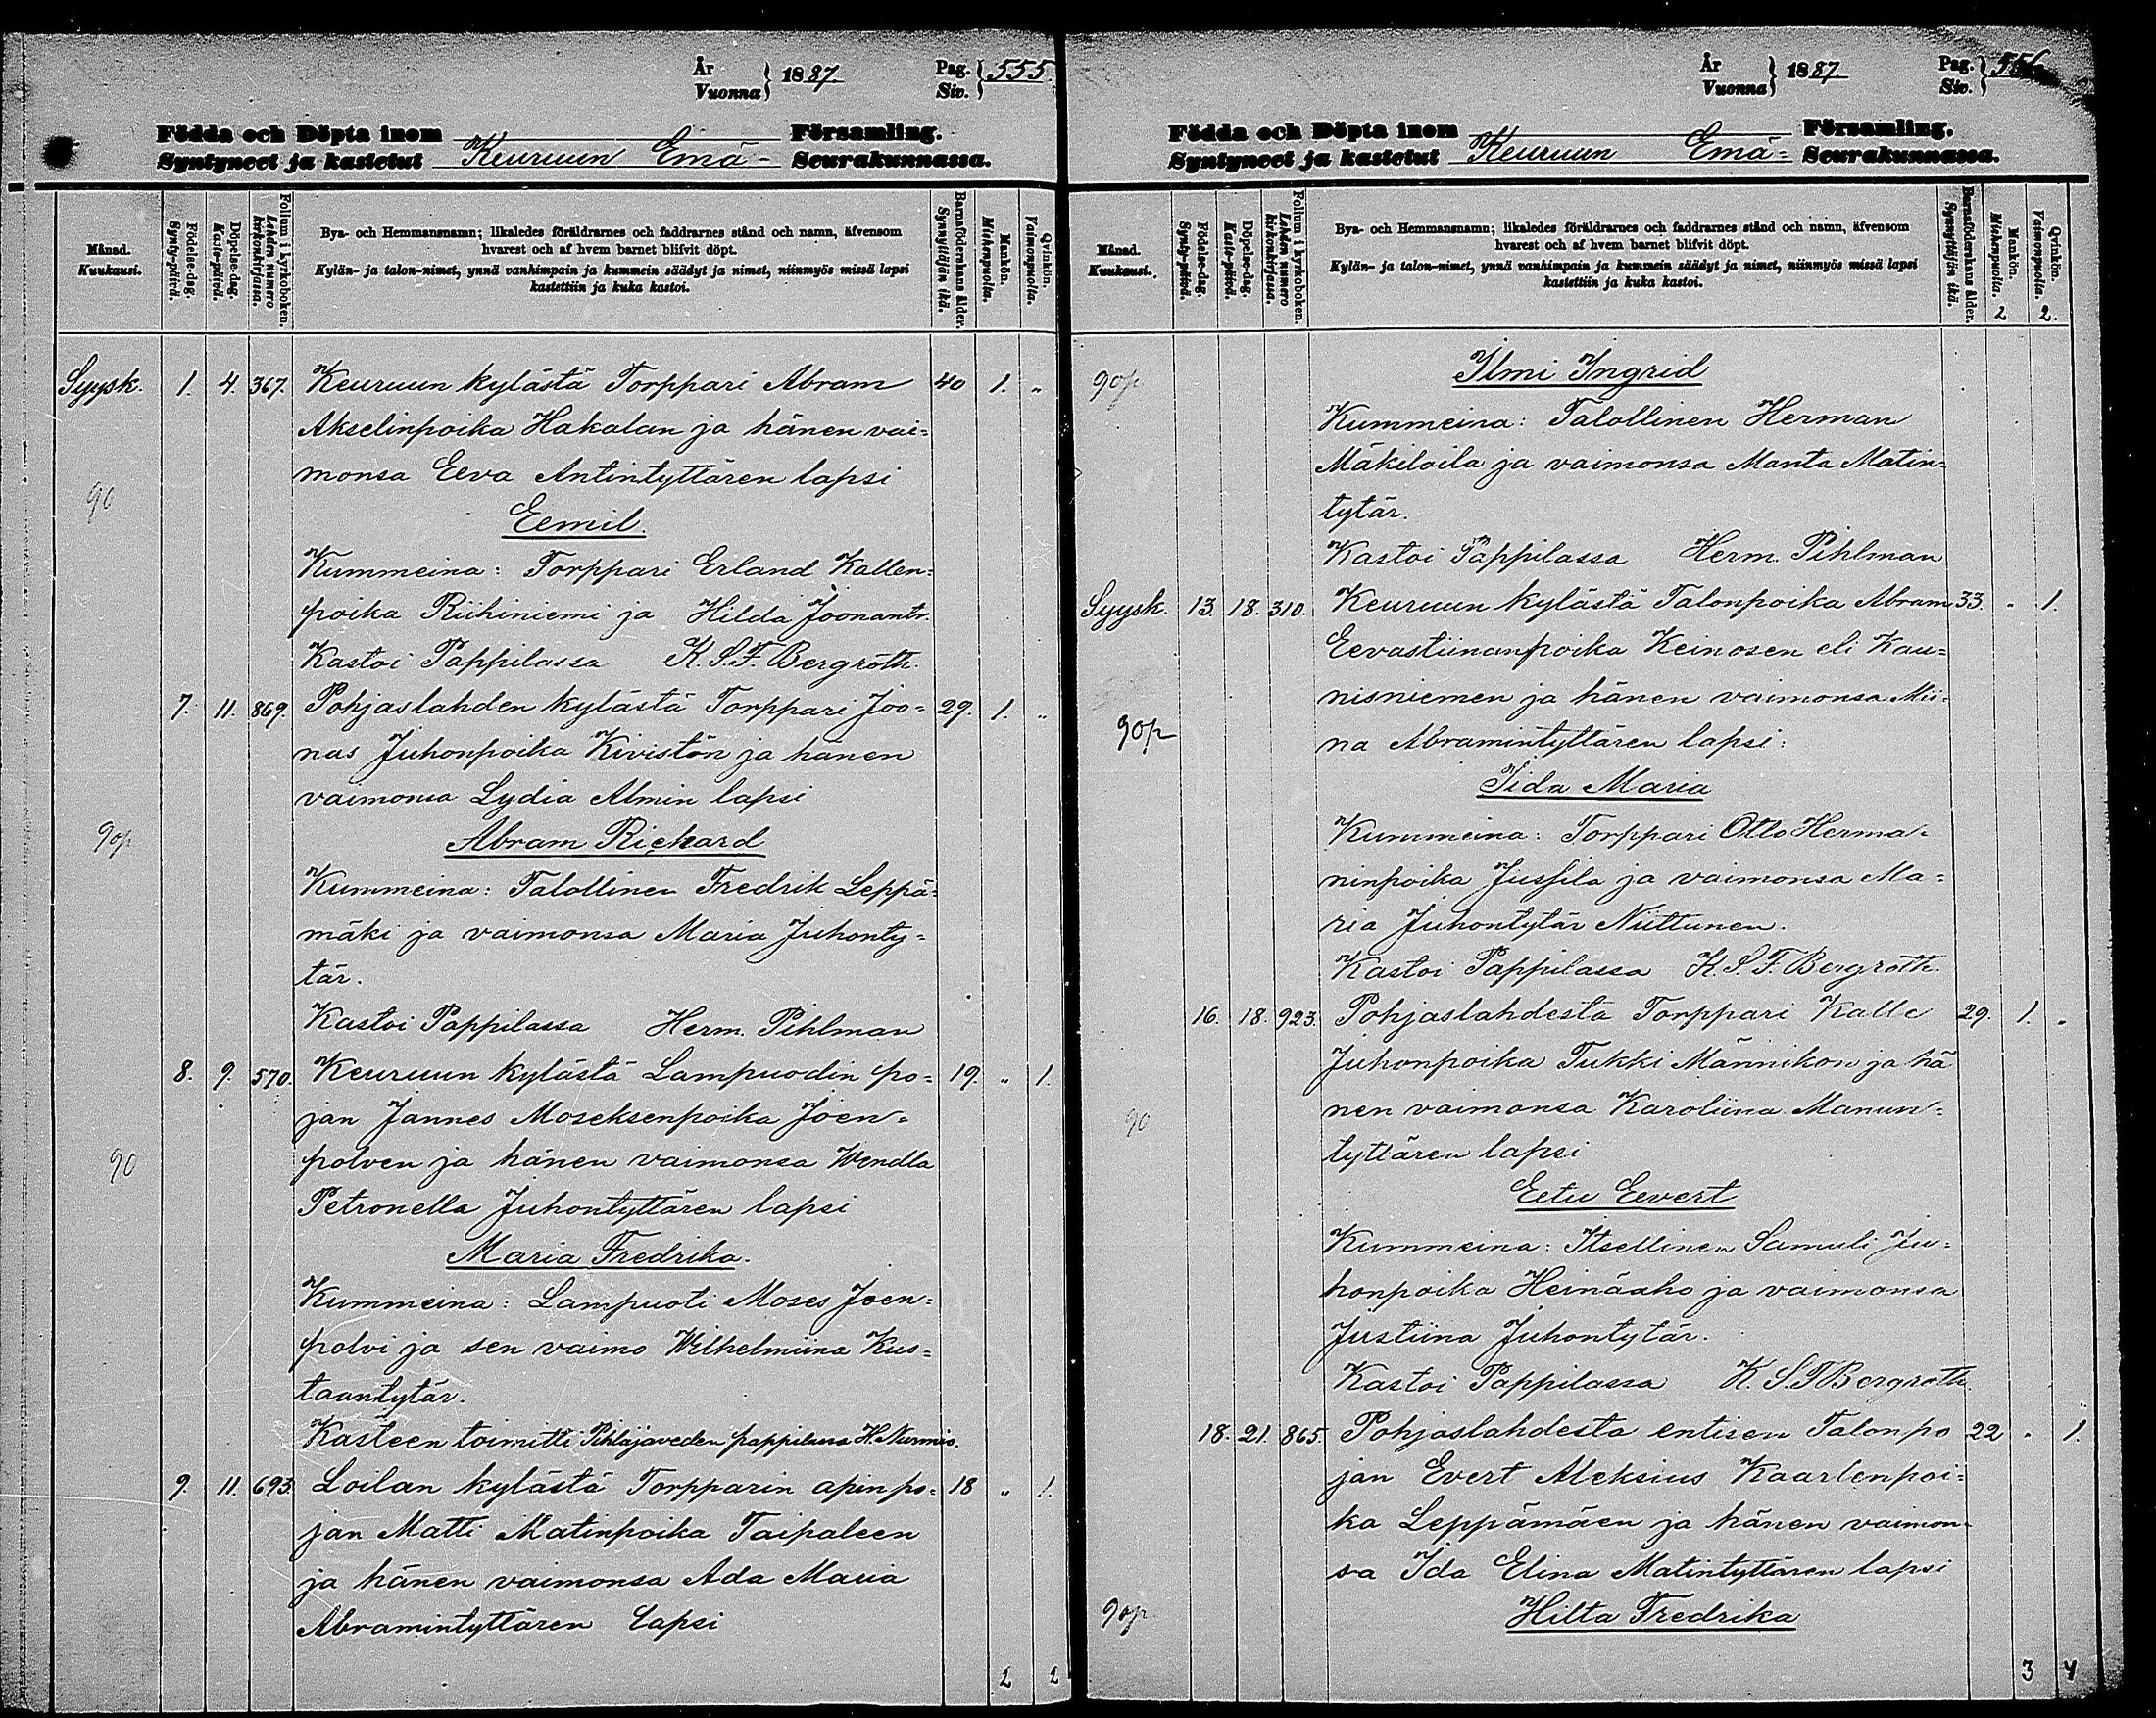 År
Vuonna } 1887. Pag.
Siv. } 555.
Födda och Döpta inom Församling.
Syntyneet ja kastetut Keuruun Emä- Seurakunnassa.
Månad.
Kuukausi.
Födelse-dag.
Synty-päivä.
Döpelse-dag.
Kaste-päivä.
Folium i kyrkoboken.
Lehden numero kirkonkirjassa.
Bya- och Hemmansnamn; likaledes föräldrarnes och faddrarnes stånd och namn, äfvensom
hvarest och af hvem barnet blifvit döpt.
Kylän- ja talon-nimet, ynnä vanhimpain ja kummein säädyt ja nimet, niinmyös missä lapsi
kastettiin ja kuka kastoi.
Barnaföderskans ålder.
Synnyttäjän ikä.
Mankön.
Miehenpuolta.
Qvinkön.
Vaimonpuolta.
Syysk. 1. 4. 367. Keuruun kylästä Torppari Abram 40 1. "
Akselinpoika Hakalan ja hänen vai=
monsa Eeva Antintyttären lapsi
90
Eemil.
Kummeina: Torppari Erland Kallen=
poika Riihiniemi ja Hilda Joonantr.
Kastoi Pappilassa K. S. F. Bergroth.
7. 11. 869. Pohjaslahden kylästä Torppari Joo= 29. 1. "
nas Juhonpoika Kivistön ja hänen
vaimonsa Lydia Almin lapsi
90p Abram Richard
Kummeina: Talollinen Fredrik Leppä=
mäki ja vaimonsa Maria Juhonty=
tär.
Kastoi Pappilassa Herm. Pihlman
8. 9. 570. Keuruun kylästä Lampuodin po= 19. " 1.
jan Jannes Moseksenpoika Joen=
90 polven ja hänen vaimonsa Wendla
Petronella Juhontyttären lapsi
Maria Fredrika.
Kummeina: Lampuoti Moses Joen=
polvi ja sen vaimo Wilhelmiina Kus=
taantytär.
Kasteen toimitti Pihlajaveden pappilassa H. Nurmio.
9. 11. 693. Loilan kylästä Torpparin apinpo= 18 " 1.
jan Matti Matinpoika Taipaleen
ja hänen vaimonsa Ada Maria
Abramintyttären lapsi
2 2
År
Vuonna } 1887 Pag.
Siv. } 556
Födda och Döpta inom Församling.
Syntyneet ja kastetut Keuruun Emä= Seurakunnassa.
Månad.
Kuukausi.
Födelse-dag.
Synty-päivä.
Döpelse-dag.
Kaste-päivä.
Folium i kyrkoboken.
Lehden numero kirkonkirjassa.
Bya- och Hemmansnamn; likaledes föräldrarnes och faddrarnes stånd och namn, äfvensom
hvarest och af hvem barnet blifvit döpt.
Kylän- ja talon-nimet, ynnä vanhimpain ja kummein säädyt ja nimet, niinmyös missä lapsi
kastettiin ja kuka kastoi.
Barnaföderskans ålder.
Synnyttäjän ikä.
Mankön.
Miehenpuolta.
Qvinkön.
Vaimonpuolta.
2 2.
90p Ilmi Ingrid
Kummeina: Talollinen Herman
Mäkiloila ja vaimonsa Manta Matin=
tytär.
Kastoi Pappilassa Herm. Pihlman
Syysk. 13. 18. 310. Keuruun kylästä Talonpoika Abram 33. " 1.
Eevastiinanpoika Keinosen eli Kau=
nisniemen ja hänen vaimonsa Mii=
90p na Abramintyttären lapsi:
Iida Maria
Kummeina: Torppari Otto Herma=
ninpoika Jussila ja vaimonsa Ma=
ria Juhontytär Niittunen.
Kastoi Pappilassa K. S. F. Bergroth.
16. 18. 923. Pohjaslahdesta Torppari Kalle 29. 1. "
Juhonpoika Tukki Männikon ja hä
90 nen vaimonsa Karoliina Manun=
tyttären lapsi
Eetu Eevert
Kummeina: Itsellinen Samuli Ju=
honpoika Heinäaho ja vaimonsa
Justiina Juhontytär.
Kastoi Pappilassa K. S. F. Bergroth.
18. 21. 865. Pohjaslahdesta entisen Talonpo 22 " 1.
jan Evert Aleksius Kaarlenpoi=
ka Leppämäen ja hänen vaimon=
sa Ida Elina Matintyttären lapsi
90p Hilta Fredrika
3 4